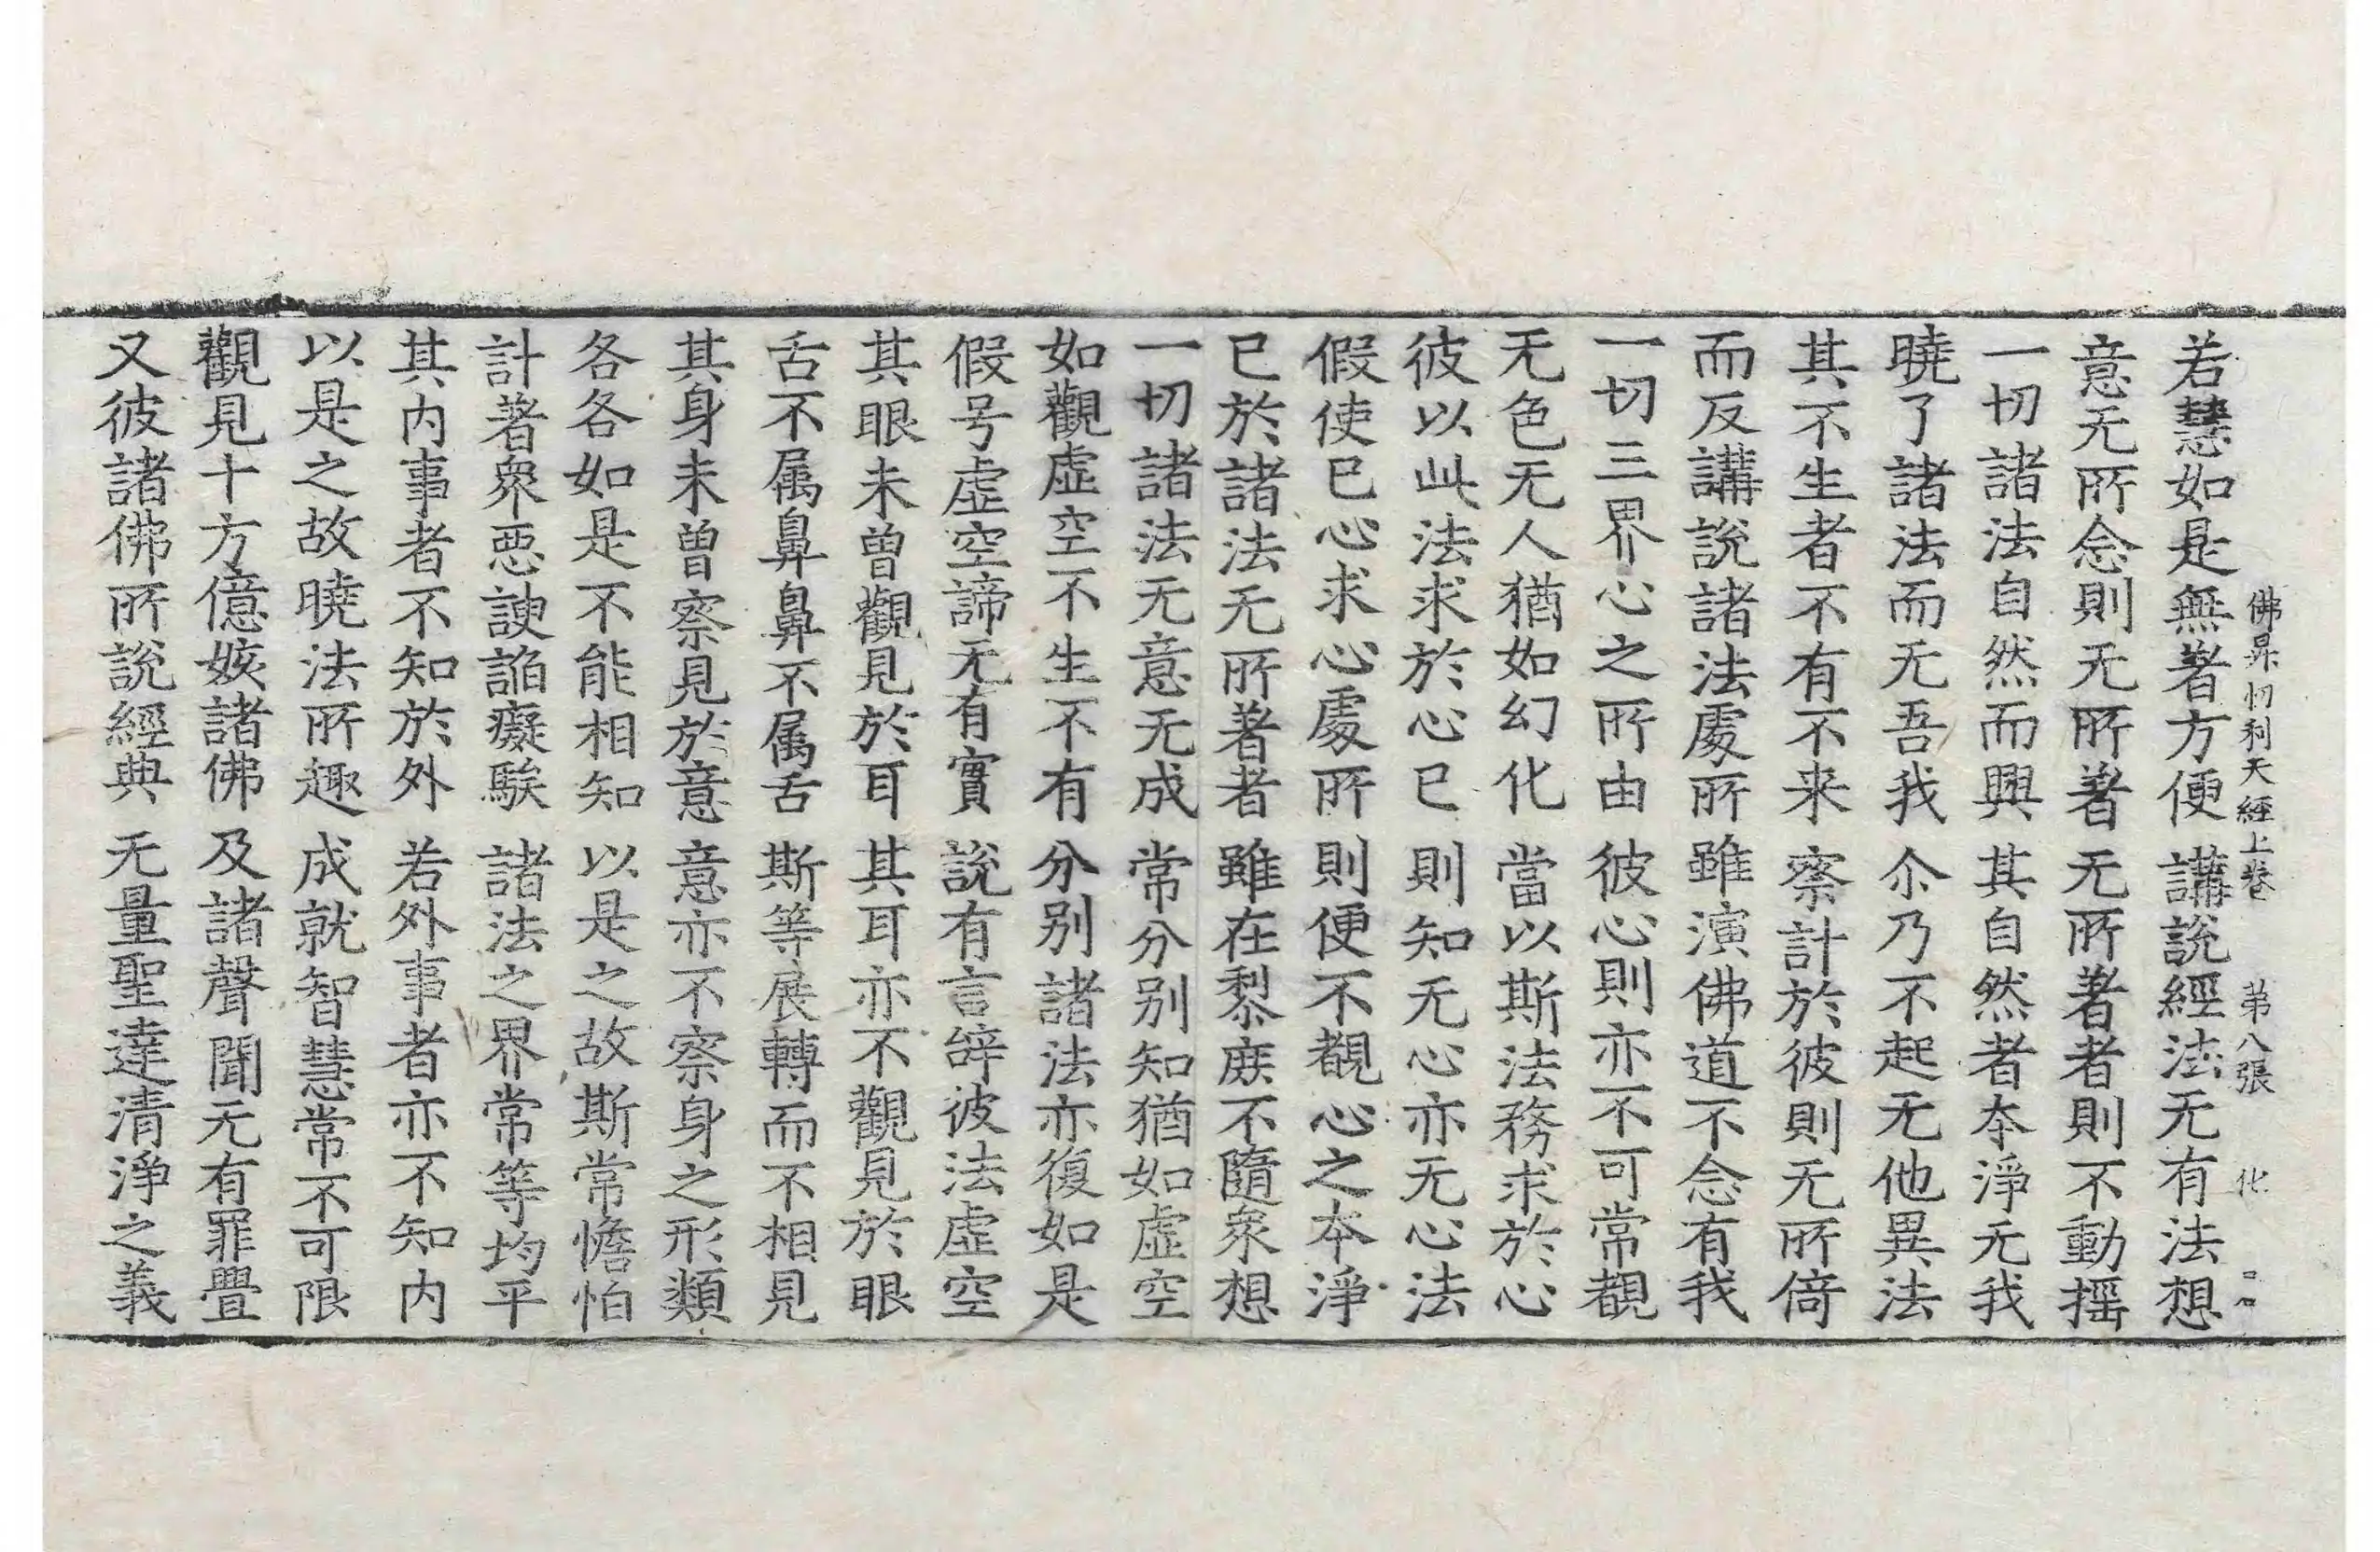 佛昇忉利天經上卷 第八張 化
若慧如是無著方便 講說經法无有法想
意无所念則无所著 无所著者則不動搖
一切諸法自然而興 其自然者本淨无我
曉了諸法而无吾我 尒乃不起无他異法
其不生者不有不来 察計於彼則无所倚
而反講說諸法處所 雖演佛道不念有我
一切三界心之所由 彼心則亦不可常覩
无色无人猶如幻化 當以斯法務求於心
彼以此法求於心已 則知无心亦无心法
假使已心求心處所 則便不覩心之本淨
已於諸法无所著者 雖在黎庶不隨衆想
一切諸法无意无成 常分別知猶如虛空
如觀虛空不生不有 分别諸法亦復如是
假号虛空諦无有實 說有言辝彼法虛空
其眼未曾觀見於耳 其耳亦不觀見於眼
舌不属鼻鼻不属舌 斯等展轉而不相見
其身未曾察見於意 意亦不察身之形類
各各如是不能相知 以是之故斯常憺怕
計著衆惡諛諂癡騃 諸法之界常等均平
其内事者不知於外 若外事者亦不知内
以是之故曉法所趣 成就智慧常不可限
觀見十方億姟諸佛 及諸聲聞无有罪舋
又彼諸佛所說經典 无量聖達清淨之義